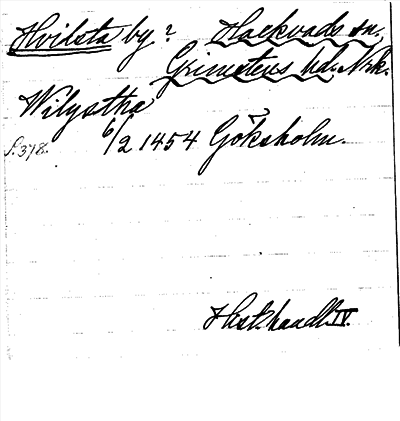 Hvilsta by? Hackvads sn,
Grimstens hd. Nrk.
Wilgstha
6/2 1454 Göksholm.
s. 378.
Hist. handl. IV.